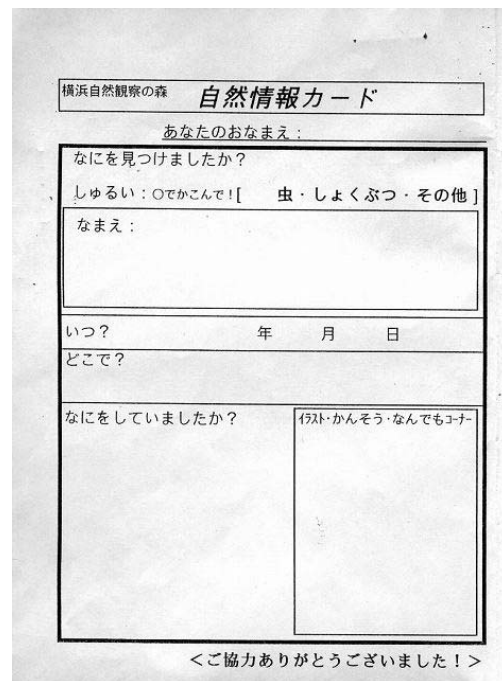 横浜自然観察の森 自然情報カード
あなたのおなまえ:
なにを見つけましたか?
しゅるい:○でかこんで![ 虫・しょくぶつ・その他]
なまえ:
いつ? 年 月 日
どこで?
なにをしていましたか?
イラスト・かんそう・なんでもコーナー
<ご協力ありがとうございました!>